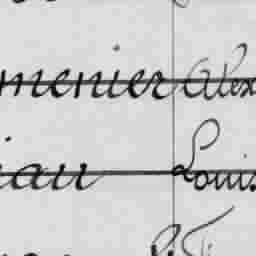 menier Alex
iau Louis